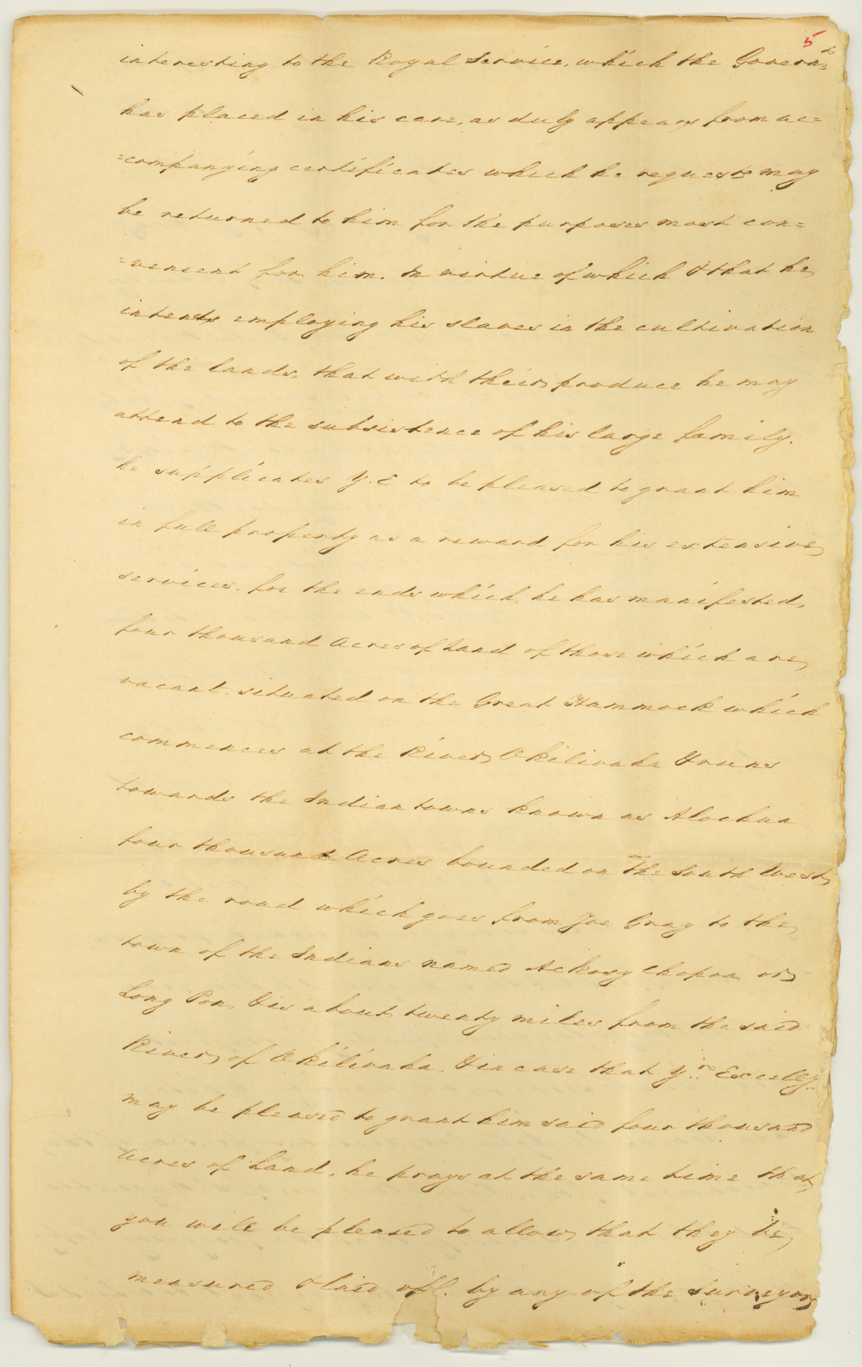 5
interesting to the Royal Service, which the Govern=t
has placed in his care, as duly appears from ac=
=companying certificates which he requests may
be returned to him for the purposes most con=
=venient for him. In virtue of which & that he
intents employing his slaves in the cultivation
of the lands, that with their produce he may
attend to the subsistence of his large family.
he supplicates Y. E to be pleased to grant him
in full property as a reward for his extensive
services. for the ends which he has manifested,
four thousand Acres of Land of those which are
vacant, situated on the Great Hammock which
commences at the River Okilivaha & runs
towards the Indian towns known as Alochua
four thousand Acres bounded on the South West
by the road which goes from Joe Gray to the
town of the Indians named Ackosy Chapoa or
Long Pon, & is about twenty miles from the said
River of Okilivaha. & in case that Yr. Excelly
may be pleased to grant him said four thousand
Acres of Land, he prays at the same time that
you will be pleased to allow that they be
measured & laid off. by any of the Surveyors